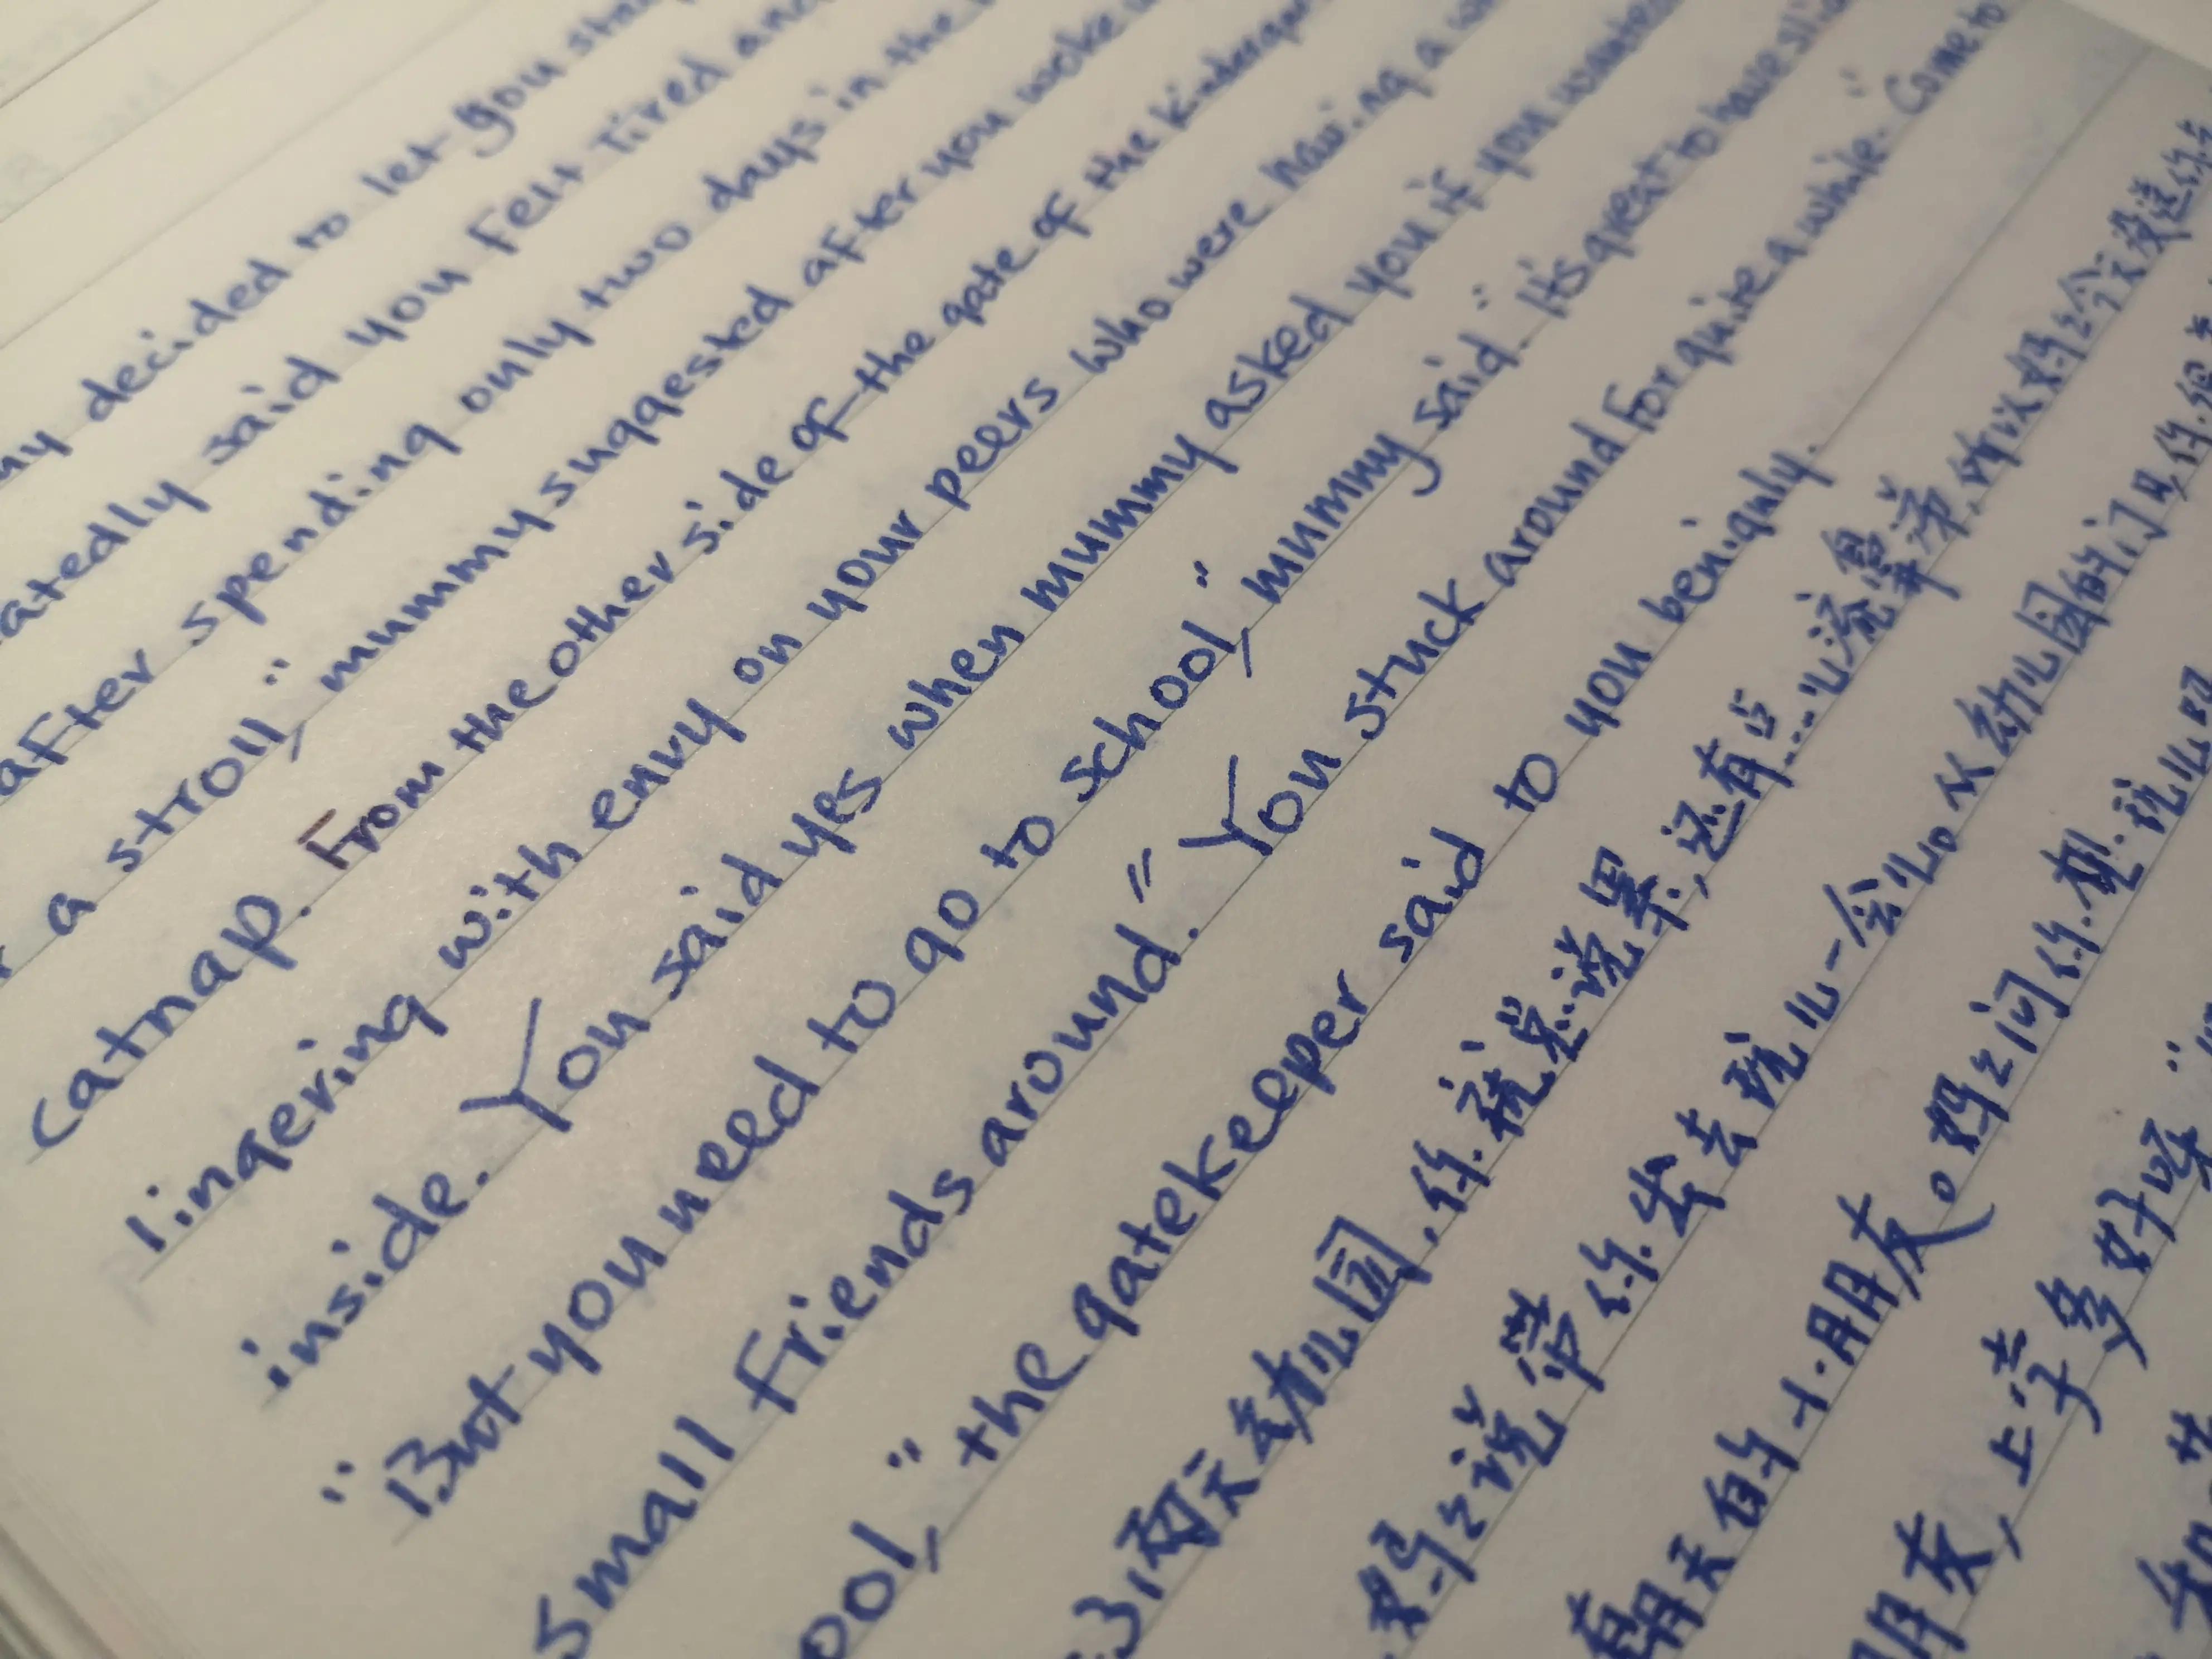 decided to let you
said you felt tired and
after spending only two days in the
a stroll," mummy suggested after you woke
catnap. From the other side of the gate of the
lingering with envy on your peers who were having a
inside. You said yes when mummy asked you if you wanted
"But you need to go to school," mummy said. "It's great to have
small friends around." You stuck around for quite a while. "Come to
the gatekeeper said to you benignly.
两天幼儿园,你就总说累,还有点儿流鼻涕,所以妈妈今天没送你
妈妈说带你出去玩儿一会儿。从幼儿园的门口,你
聊天的小朋友。妈妈问你想
朋友,上学多好呀